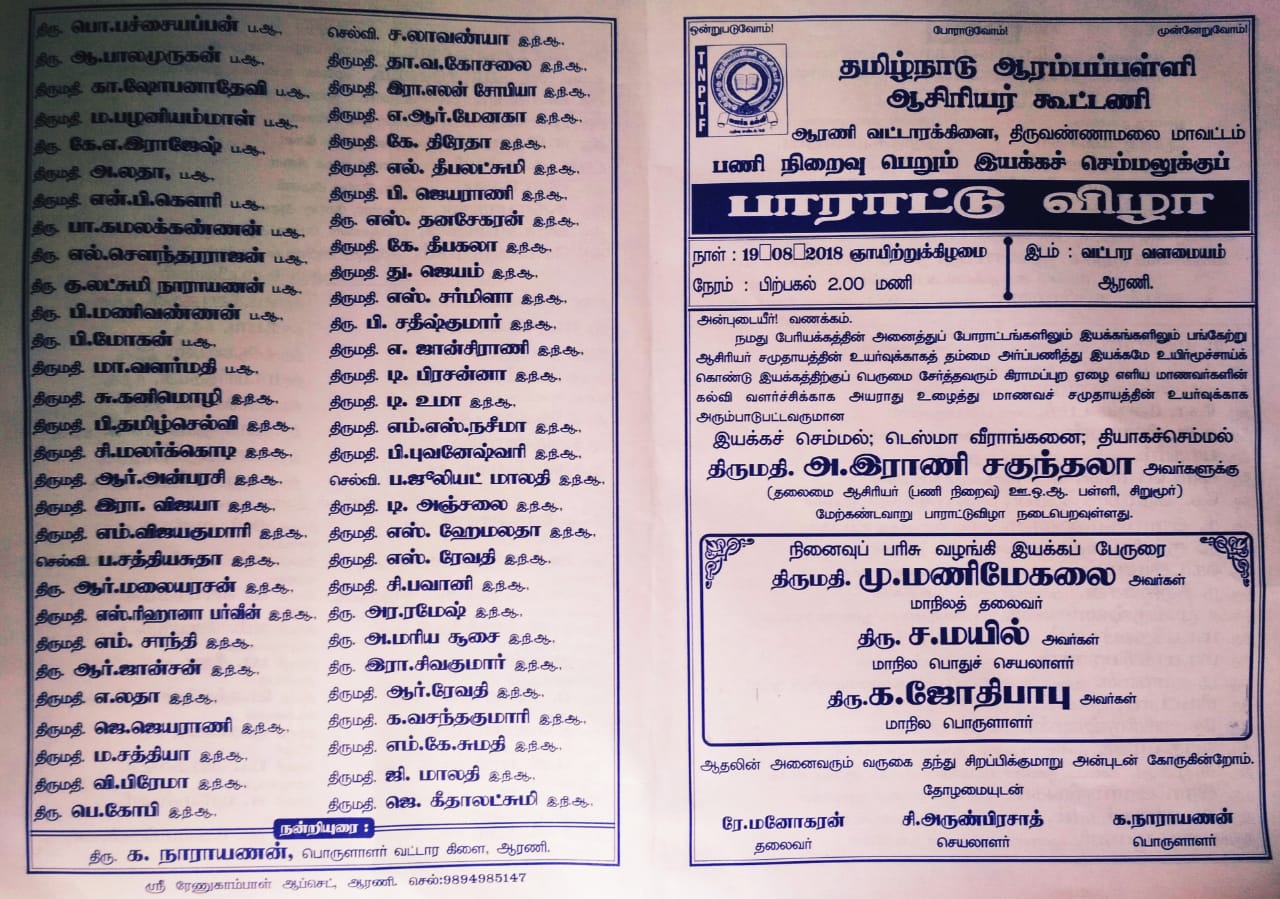 திரு. பொ.பச்சையப்பன் ப.ஆ.,
திரு. ஆ.பாலமுருகன் ப.ஆ.,
திருமதி. கா.ஷோபனாதேவி ப.ஆ.,
திருமதி. ம.பழனியம்மாள் ப.ஆ.,
திரு. கே.எ.இராஜேஷ் ப.ஆ.,
திருமதி. அ.லதா, ப.ஆ.,
திருமதி. என்.பி.கௌரி ப.ஆ.,
திரு. பா.கமலக்கண்ணன் ப.ஆ.,
திரு. எல்.சௌந்தரராஜன் ப.ஆ.,
திரு. கு.லட்சுமி நாராயணன் ப.ஆ.,
திரு. பி.மணிவண்ணன் ப.ஆ.,
திரு. பி.மோகன் ப.ஆ.,
திருமதி. மா.வளர்மதி ப.ஆ.,
திருமதி. சு.கனிமொழி இ.நி.ஆ.,
திருமதி. பி.தமிழ்செல்வி இ.நி.ஆ.,
திருமதி. சி.மலர்க்கொடி இ.நி.ஆ.,
திருமதி. ஆர்.அன்பரசி இ.நி.ஆ.,
திருமதி. இரா. விஜயா இ.நி.ஆ.,
திருமதி. எம்.விஜயகுமாரி இ.நி.ஆ.,
செல்வி. ப.சத்தியசுதா இ.நி.ஆ.,
திரு. ஆர்.மலையரசன் இ.நி.ஆ.,
திருமதி. எஸ்.ரிஹானா பர்வீன் இ.நி.ஆ.,
திருமதி. எம். சாந்தி இ.நி.ஆ.,
திரு. ஆர்.ஜான்சன் இ.நி.ஆ.,
திருமதி. எ.லதா இ.நி.ஆ.,
திருமதி. ஜெ.ஜெயராணி இ.நி.ஆ.,
திருமதி. ம.சத்தியா இ.நி.ஆ.,
திருமதி. வி.பிரேமா இ.நி.ஆ.,
திரு. பெ.கோபி இ.நி.ஆ.,
செல்வி. ச.லாவண்யா இ.நி.ஆ.,
திருமதி. தா.வ.கோசலை இ.நி.ஆ.,
திருமதி. இரா.எலன் சோபியா இ.நி.ஆ.,
திருமதி. எ.ஆர்.மேனகா இ.நி.ஆ.,
திருமதி. கே. திரேதா இ.நி.ஆ.,
திருமதி. எல். தீபலட்சுமி இ.நி.ஆ.,
திருமதி. பி. ஜெயராணி இ.நி.ஆ.,
திரு. எஸ். தனசேகரன் இ.நி.ஆ.,
திருமதி. கே. தீபகலா இ.நி.ஆ.,
திருமதி. து. ஜெயம் இ.நி.ஆ.,
திருமதி. எஸ். சர்மிளா இ.நி.ஆ.,
திரு. பி. சதீஷ்குமார் இ.நி.ஆ.,
திருமதி. எ. ஜான்சிராணி இ.நி.ஆ.,
திருமதி. டி. பிரசன்னா இ.நி.ஆ.,
திருமதி. டி. உமா இ.நி.ஆ.,
திருமதி. எம்.எஸ்.நசீமா இ.நி.ஆ.,
திருமதி. பி.புவனேஷ்வரி இ.நி.ஆ.,
செல்வி. ப.ஜூலியட் மாலதி இ.நி.ஆ.,
திருமதி. டி. அஞ்சலை இ.நி.ஆ.,
திருமதி. எஸ். ஹேமலதா இ.நி.ஆ.,
திருமதி. எஸ். ரேவதி இ.நி.ஆ.,
திருமதி. சி.பவானி இ.நி.ஆ.,
திரு. அர.ரமேஷ் இ.நி.ஆ.,
திரு. அ.மரிய சூசை இ.நி.ஆ.,
திரு. இரா.சிவகுமார் இ.நி.ஆ.,
திருமதி. ஆர்.ரேவதி இ.நி.ஆ.,
திருமதி. க.வசந்தகுமாரி இ.நி.ஆ.,
திருமதி. எம்.கே.சுமதி இ.நி.ஆ.,
திருமதி. ஜி. மாலதி இ.நி.ஆ.,
திருமதி. ஜெ. கீதாலட்சுமி இ.நி.ஆ.,
நன்றியுரை :
திரு. க. நாராயணன், பொருளாளர் வட்டார கிளை, ஆரணி.
ஸ்ரீ ரேணுகாம்பாள் ஆப்செட், ஆரணி. செல்:9894985147
ஒன்றுபடுவோம்! போராடுவோம்! முன்னேறுவோம்!
TNPTF
தமிழ்நாடு ஆரம்பப்பள்ளி
ஆசிரியர் கூட்டணி
ஆரணி வட்டாரக்கிளை, திருவண்ணாமலை மாவட்டம்
பணி நிறைவு பெறும் இயக்கச் செம்மலுக்குப்
பாராட்டு விழா
நாள் : 19▯08▯2018 ஞாயிற்றுக்கிழமை
நேரம் : பிற்பகல் 2.00 மணி
இடம் : வட்டார வளமையம்
ஆரணி.
அன்புடையீர்! வணக்கம்.
நமது பேரியக்கத்தின் அனைத்துப் போராட்டங்களிலும் இயக்கங்களிலும் பங்கேற்று
ஆசிரியர் சமுதாயத்தின் உயர்வுக்காகத் தம்மை அர்ப்பணித்து இயக்கமே உயிர்மூச்சாய்க்
கொண்டு இயக்கத்திற்குப் பெருமை சேர்த்தவரும் கிராமப்புற ஏழை எளிய மாணவர்களின்
கல்வி வளர்ச்சிக்காக அயராது உழைத்து மாணவச் சமுதாயத்தின் உயர்வுக்காக
அரும்பாடுபட்டவருமான
இயக்கச் செம்மல்; டெஸ்மா வீராங்கனை; தியாகச்செம்மல்
திருமதி. அ.இராணி சகுந்தலா அவர்களுக்கு
(தலைமை ஆசிரியர் (பணி நிறைவு) ஊ.ஒ.ஆ. பள்ளி, சிறுமூர்)
மேற்கண்டவாறு பாராட்டுவிழா நடைபெறவுள்ளது.
நினைவுப் பரிசு வழங்கி இயக்கப் பேருரை
திருமதி. மு.மணிமேகலை அவர்கள்
மாநிலத் தலைவர்
திரு. ச.மயில் அவர்கள்
மாநில பொதுச் செயலாளர்
திரு.க.ஜோதிபாபு அவர்கள்
மாநில பொருளாளர்
ஆதலின் அனைவரும் வருகை தந்து சிறப்பிக்குமாறு அன்புடன் கோருகின்றோம்.
தோழமையுடன்
ரே.மனோகரன் சி.அருண்பிரசாத் க.நாராயணன்
தலைவர் செயலாளர் பொருளாளர்